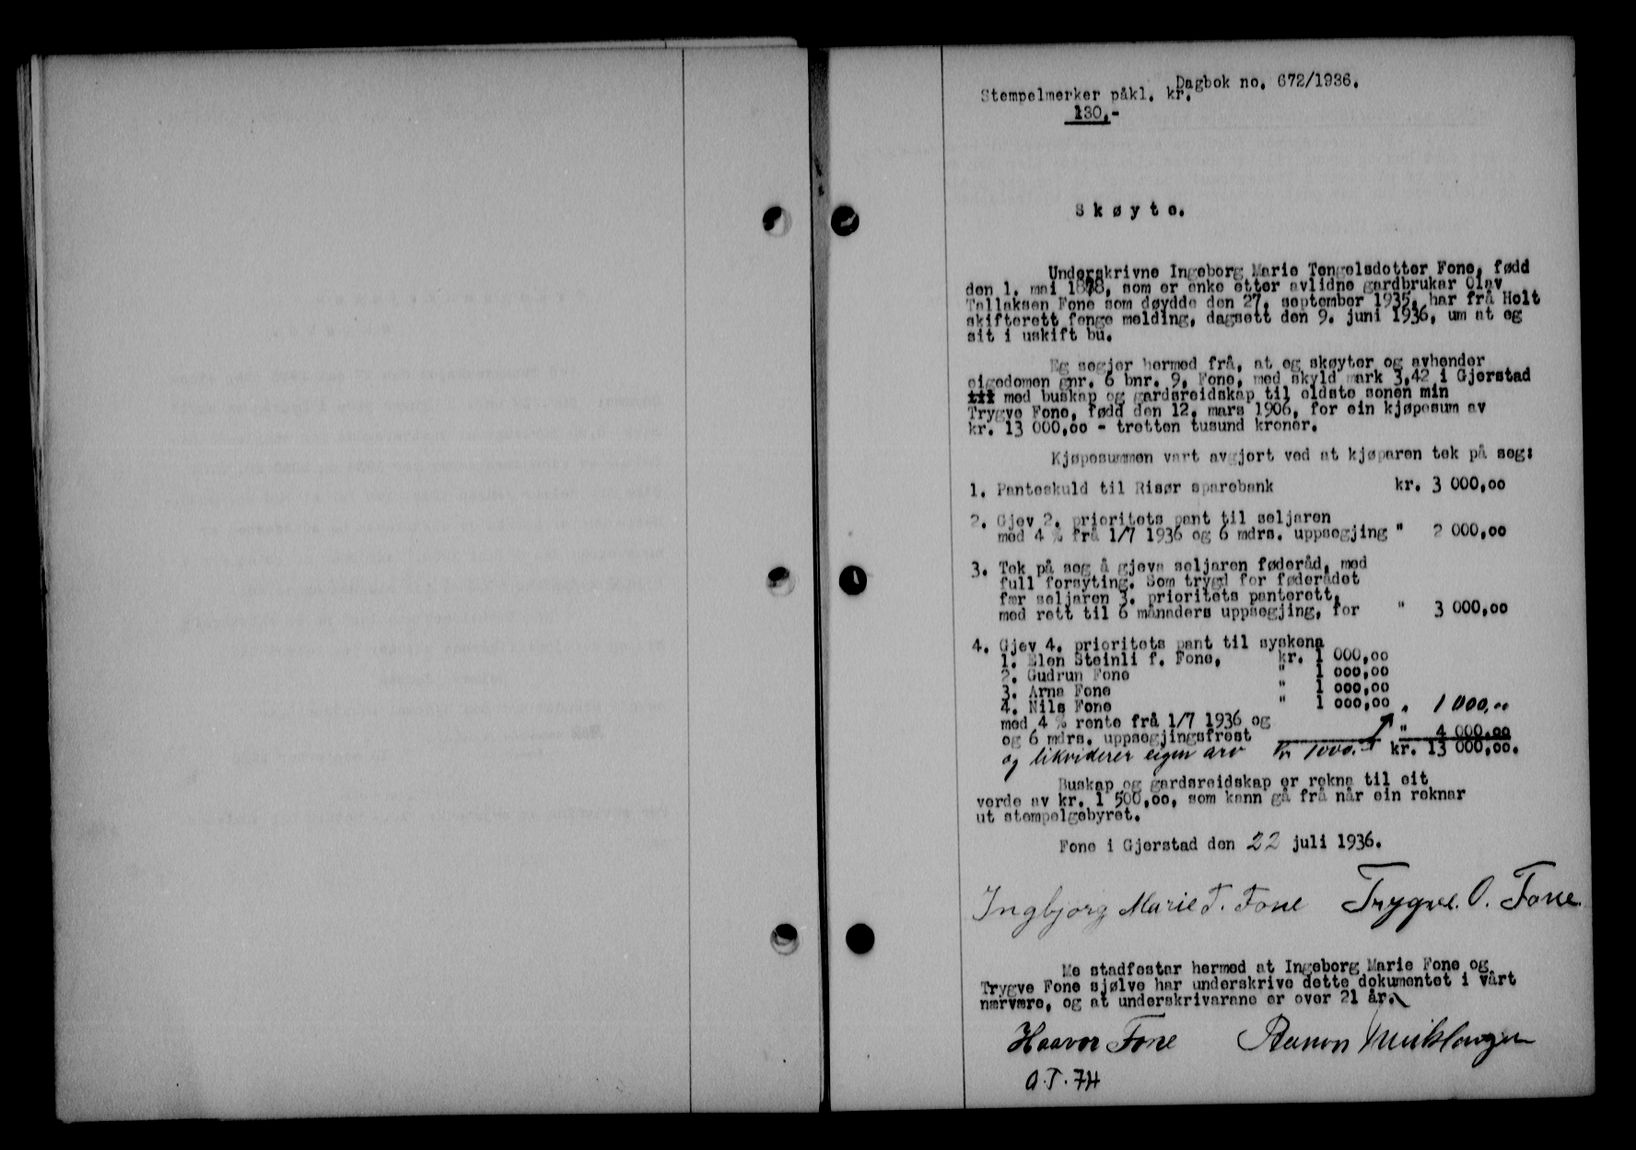 Dagbok no. 672/1936.
Stempelmerker påkl. kr.
130,-
Skøyte.
Underskrivne Ingeborg Marie Tengelsdotter Fone, fødd
den 1. mai 1878, som er enke etter avlidne gardbrukar Olav
Tellaksen Fone som døydde den 27. september 1935, har frå Holt
skifterett fenge melding, dagsett den 9. juni 1936, um at eg
sit i uskift bu.
Eg segjer hermed frå, at eg skøyter og avhender
eigedomen gnr. 6 bnr. 9, Fone, med skyld mark 3,42 i Gjerstad
med buskap og gardsreidskap til eldste sonen min
Trygve Fone, fødd den 12. mars 1906, for ein kjøpesum av
kr. 13 000,00 - tretten tusund kroner.
Kjøpesummen vart avgjort ved at kjøparen tek på seg:
1. Panteskuld til Risør sparebank kr. 3 000,00
2. Gjev 2. prioritets pant til seljaren
med 4 % frå 1/7 1936 og 6 mdrs. uppsegjing " 2 000,00
3. Tek på seg å gjeve seljaren føderåd, med
full forsyting. Som trygd for føderådet
fær seljaren 3. prioritets panterett,
med rett til 6 månaders uppsegjing, for " 3 000,00
4. Gjev 4. prioritets pant til syskena
1. Elen Steinli f. Fone, kr. 1 000,00
2. Gudrun Fone " 1 000,00
3. Arne Fone " 1 000,00
4. Nils Fone " 1 000,00 " 1000,00
med 4 % rente frå 1/7 1936 og
og 6 mdrs. uppsegjingsfrest " 4 000,00
og likviderer eigen arv kr 1000.- kr. 13 000,00.
Buskap og gardsreidskap er rekna til eit
verde av kr. 1 500,00, som kann gå frå når ein reknar
ut stempelgebyret.
Fone i Gjerstad den 22 juli 1936.
Ingbjørg Marie T. Fone Trygve. O. Fone.
Me stadfestar hermed at Ingeborg Marie Fone og
Trygve Fone sjølve har underskrive dette dokumentet i vårt
nærvære, og at underskrivarane er over 21 år.
Haavor Fone
O.T. 74